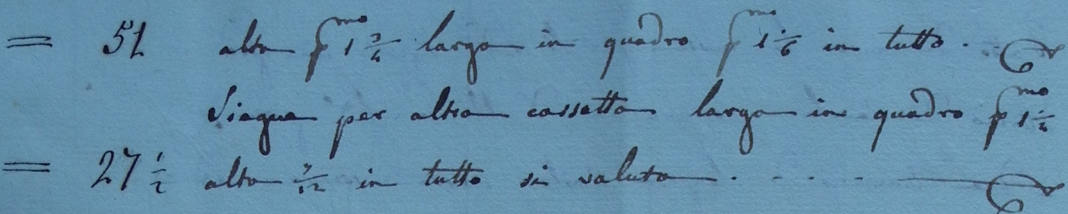 = 51 alta p.mo 1 3/4 larga in quadro p.mo 1 1/6 in tutto .
Siegue per altra cassetta larga in quadro p.mo 1 1/2
= 27 1/2 alta 7/12 in tutto si valuta . . . .